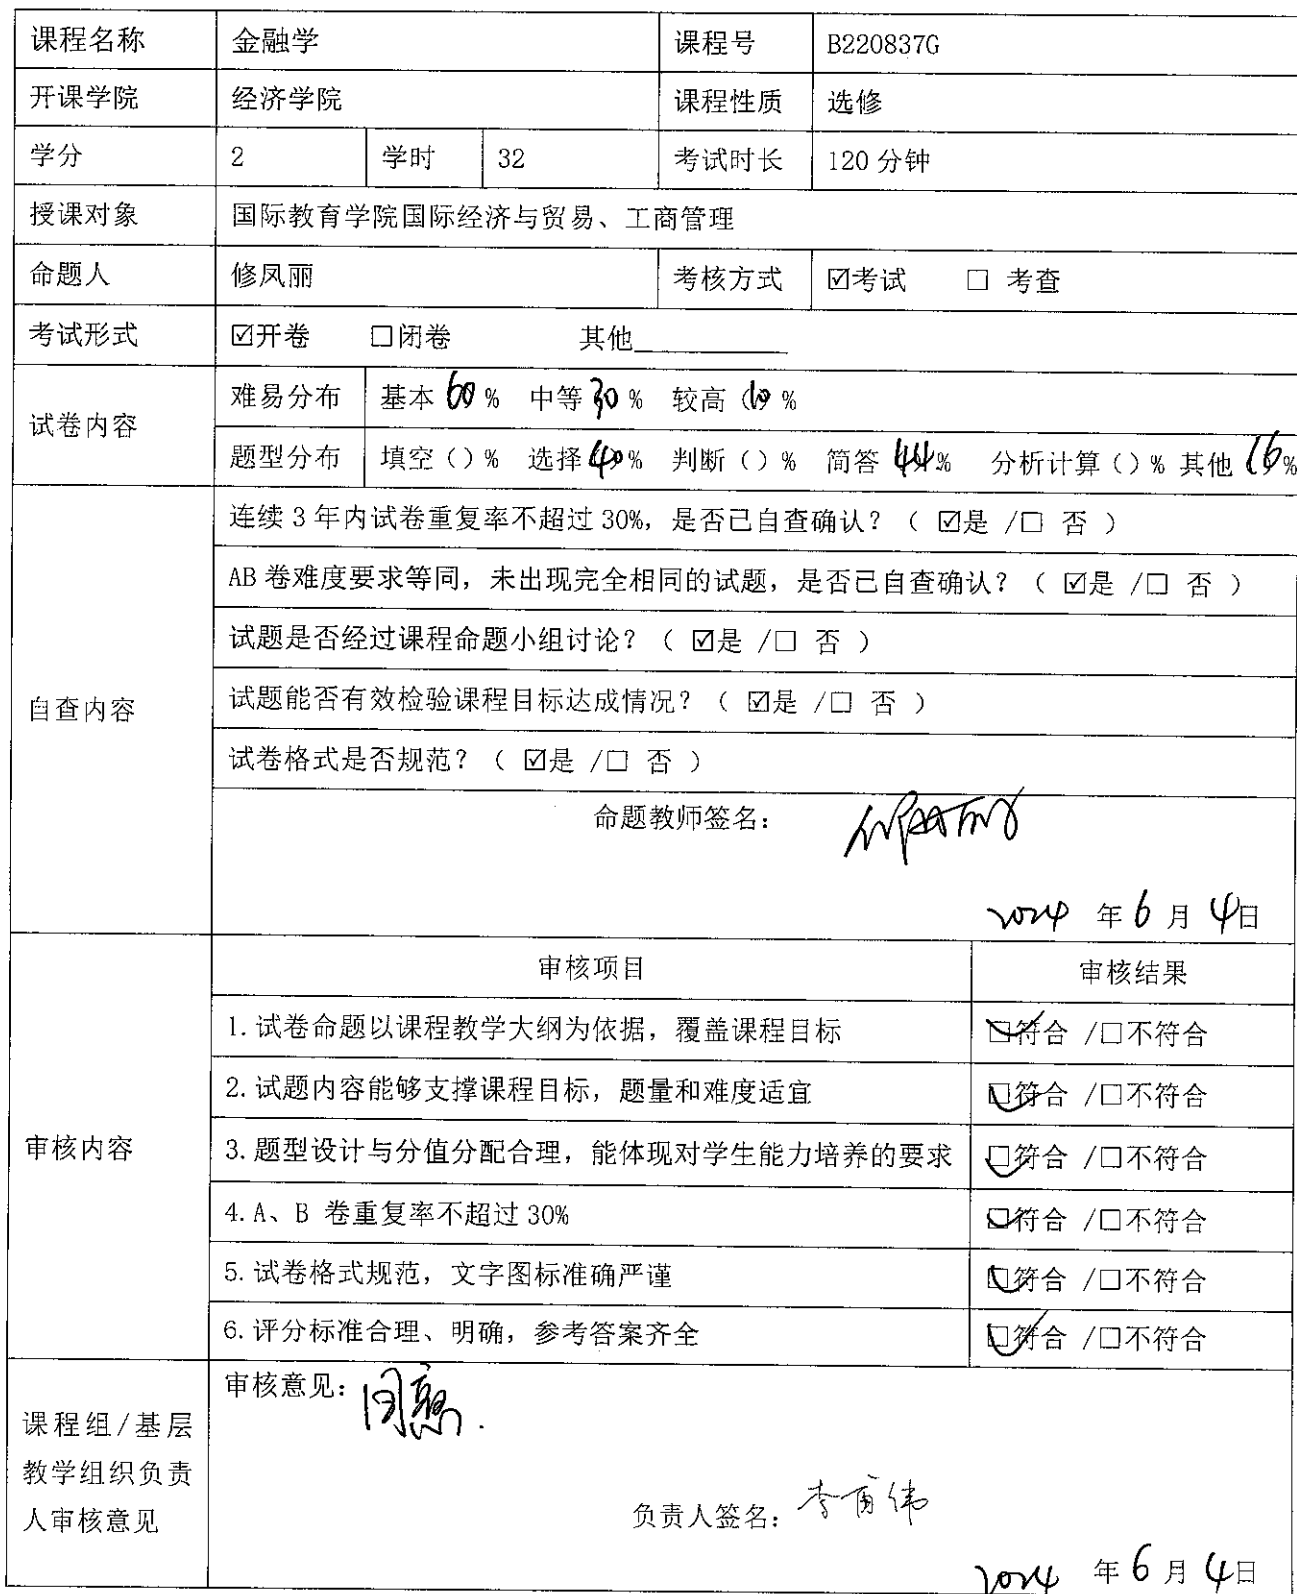 课程名称 金融学 课程号 B220837G
开课学院 经济学院 课程性质 选修
学分 2 学时 32 考试时长 120 分钟
授课对象 国际教育学院国际经济与贸易、工商管理
命题人 修凤丽 考核方式 ☑考试 □ 考查
考试形式 ☑开卷 □闭卷 其他________
试卷内容 难易分布 基本 60 % 中等 30 % 较高 10 %
题型分布 填空（）% 选择 40 % 判断（）% 简答 44 % 分析计算（）% 其他 16 %
自查内容
连续 3 年内试卷重复率不超过 30%，是否已自查确认？（ ☑是 /□ 否 ）
AB 卷难度要求等同，未出现完全相同的试题，是否已自查确认？（ ☑是 /□ 否 ）
试题是否经过课程命题小组讨论？（ ☑是 /□ 否 ）
试题能否有效检验课程目标达成情况？（ ☑是 /□ 否 ）
试卷格式是否规范？（ ☑是 /□ 否 ）
命题教师签名： 修凤丽
2024 年 6 月 4 日
审核内容
审核项目 审核结果
1. 试卷命题以课程教学大纲为依据，覆盖课程目标 ☑符合 /□不符合
2. 试题内容能够支撑课程目标，题量和难度适宜 ☑符合 /□不符合
3. 题型设计与分值分配合理，能体现对学生能力培养的要求 ☑符合 /□不符合
4. A、B 卷重复率不超过 30% ☑符合 /□不符合
5. 试卷格式规范，文字图标准确严谨 ☑符合 /□不符合
6. 评分标准合理、明确，参考答案齐全 ☑符合 /□不符合
课程组/基层
教学组织负责
人审核意见
审核意见： 同意.
负责人签名：
2024 年 6 月 4 日